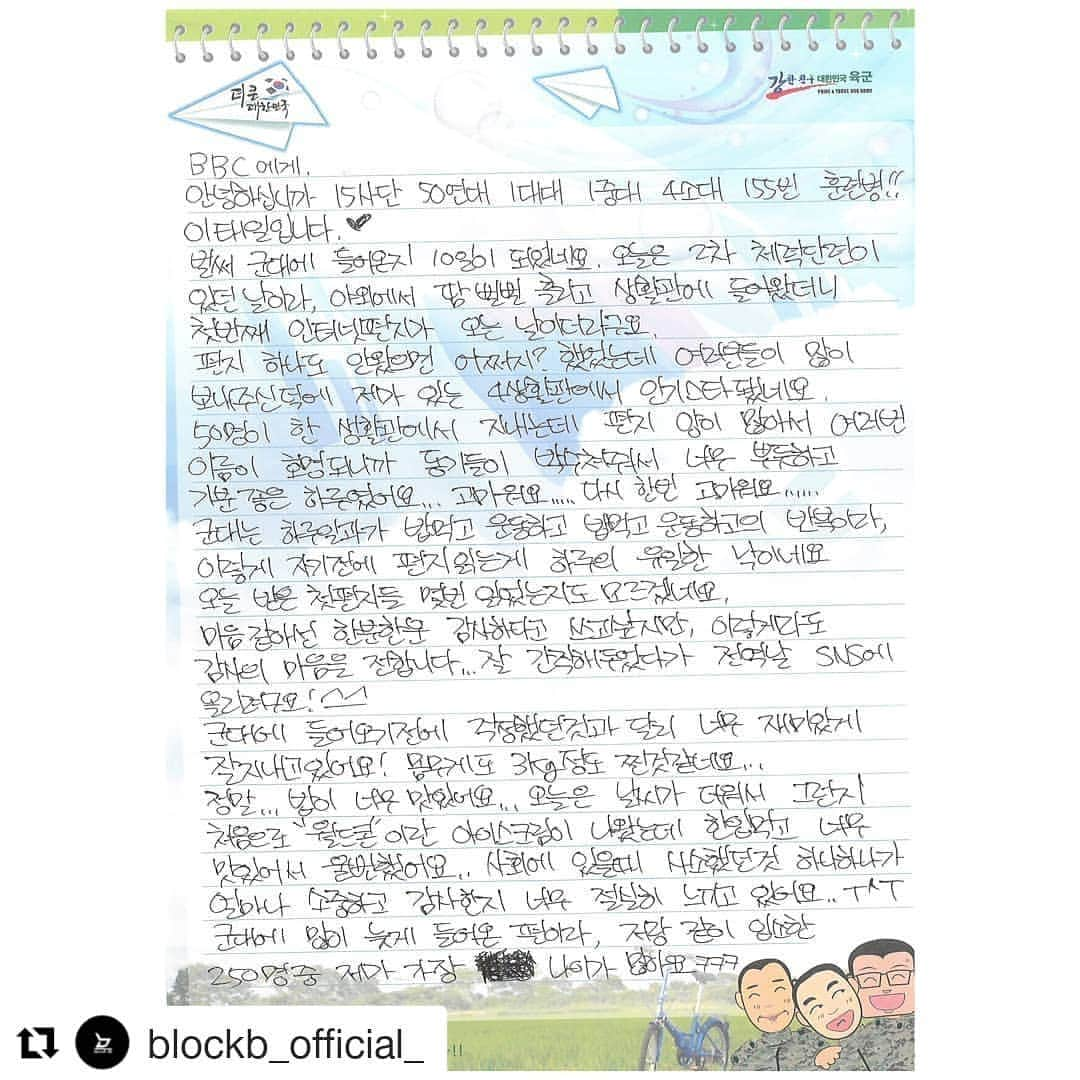 더 큰
대한민국
강한 친구 대한민국 육군
BBC에게.
안녕하십니까 15사단 50연대 1대대 1중대 4소대 155번 훈련병!!
이태일입니다.
벌써 군대에 들어온지 10일이 되었네요. 오늘은 2차 체력단련이
있던 날이라, 야외에서 땀 뻘뻘 흘리고 생활관에 들어왔더니
첫번째 인터넷편지가 오는 날이더라구요.
편지 하나도 안왔으면 어쩌지? 했었는데 여러분들이 많이
보내주신덕에 제가 있는 4생활관에서 인기스타됐네요.
50명이 한 생활관에서 지내는데 편지 양이 많아서 여러번
이름이 호명되니까 동기들이 박수쳐줘서 너무 뿌듯하고
기분 좋은 하루였어요... 고마워요..... 다시 한번 고마워요.....
군대는 하루일과가 밥먹고 운동하고 밥먹고 운동하고의 반복이라,
이렇게 자기전에 편지읽는게 하루의 유일한 낙이네요
오늘 받은 첫편지들 몇번 읽었는지도 모르겠네요.
마음같아선 한분한분 감사하다고 쓰고싶지만, 이렇게라도
감사의 마음을 전합니다... 잘 간직해두었다가 전역날 SNS에
올리려구요! ^^
군대에 들어오기전에 걱정했던것과 달리 너무 재미있게
잘지내고있어요! 몸무게도 3kg정도 찐것같네요...
정말... 밥이 너무 맛있어요... 오늘은 날씨가 더워서 그런지
처음으로 "월드콘"이란 아이스크림이 나왔는데 한입먹고 너무
맛있어서 울뻔했어요.. 사회에 있을때 사소했던것 하나하나가
얼마나 소중하고 감사한지 너무 절실히 느끼고 있어요.. ㅜ^ㅜ
군대에 많이 늦게 들어온 편이라, 저랑 같이 입소한
250명중 제가 가장 나이가 많아요 ㅋㅋㅋ
blockb_official_